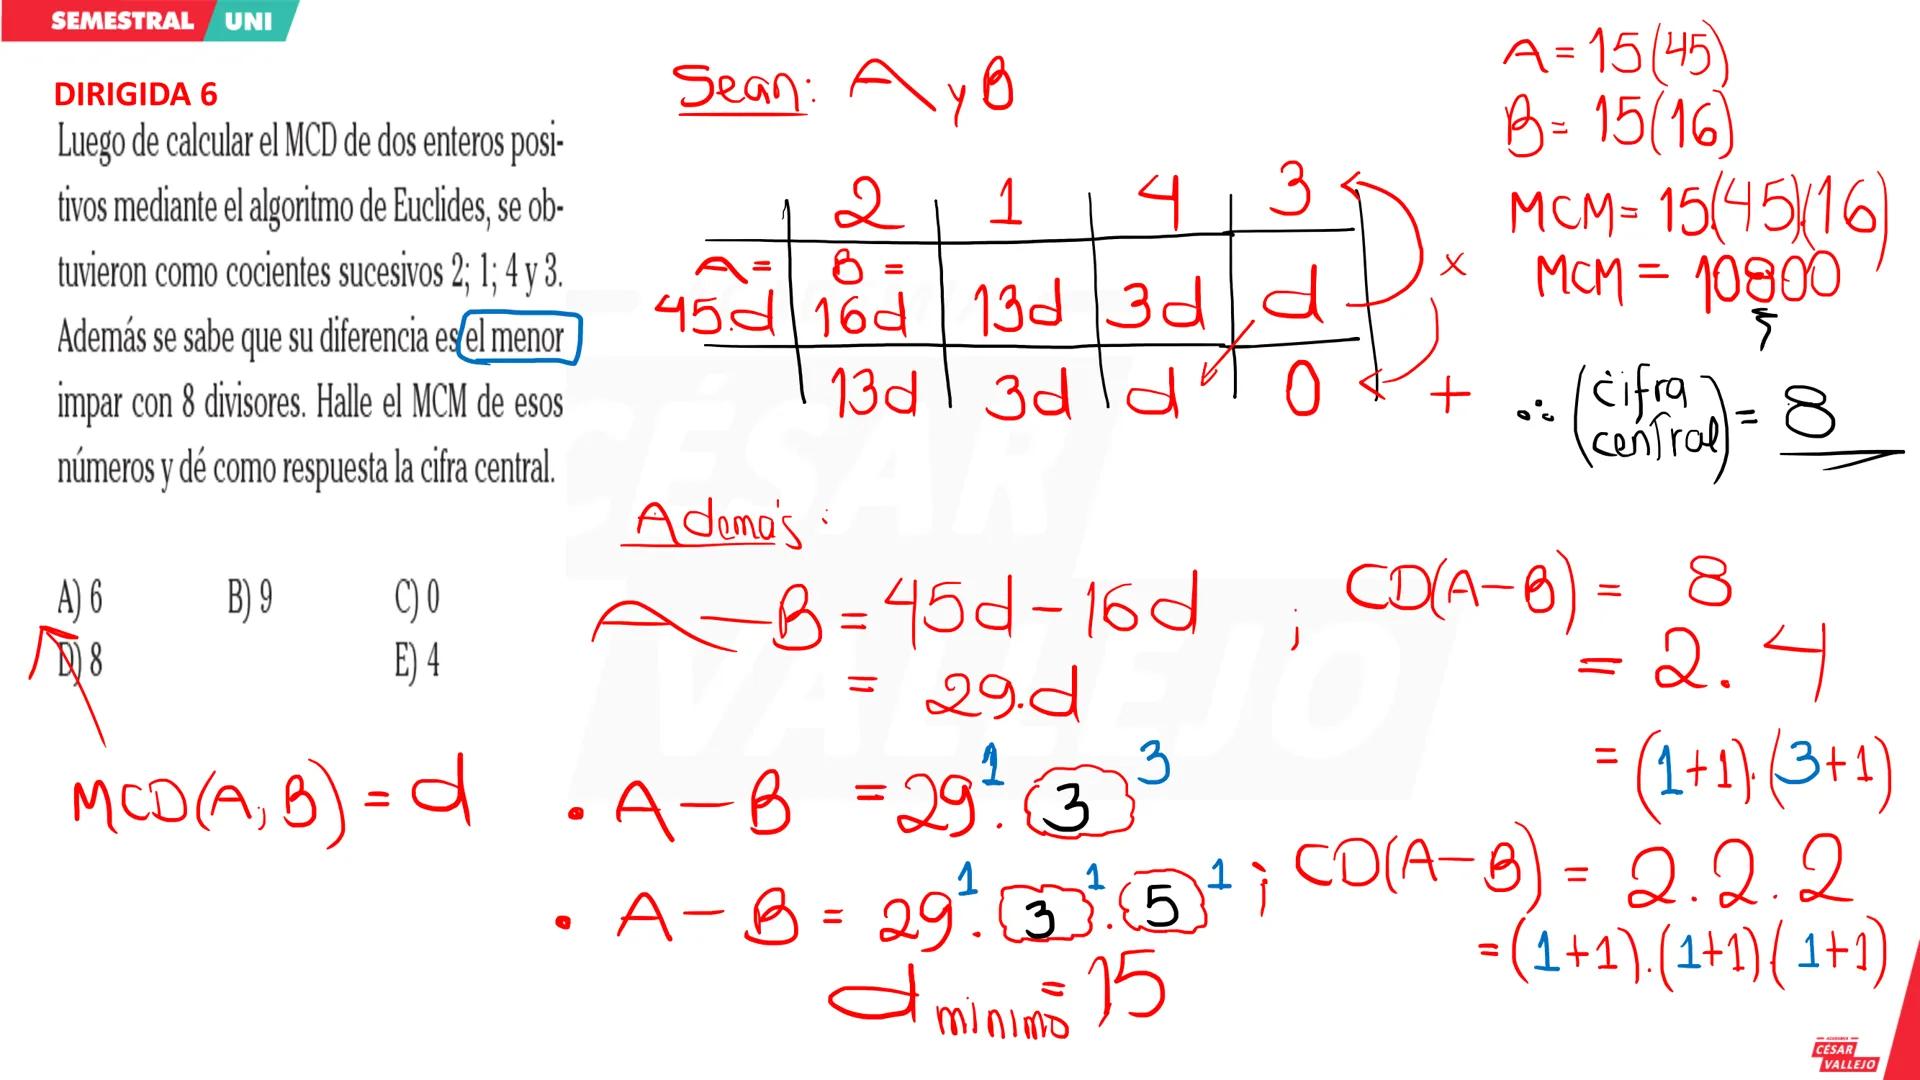 SEMESTRAL UNI
DIRIGIDA 6
Luego de calcular el MCD de dos enteros posi-
tivos mediante el algoritmo de Euclides, se ob-
tuvieron como cocientes sucesivos 2; 1; 4 y 3.
Además se sabe que su diferencia es el menor
impar con 8 divisores. Halle el MCM de esos
números y dé como respuesta la cifra central.
A) 6 B) 9 C) 0
D) 8 E) 4
MCD(A,B) = d
Sean: A y B
2 1 4 3
A= B=
45.d 16d 13d 3d d
13d 3d d 0
x
+
Además:
A-B = 45d-16d ; CD(A-B) = 8
= 29.d
= 2.4
= (1+1).(3+1)
• A-B = 29¹. 3³
• A-B = 29¹. 3¹. 5¹ ; CD(A-B) = 2.2.2
= (1+1).(1+1)(1+1)
d minimo = 15
A = 15(45)
B = 15(16)
MCM = 15.(45).(16)
MCM = 10800
∴ (cifra central) = 8
CÉSAR
VALLEJO
ACADEMIA
CÉSAR
VALLEJO